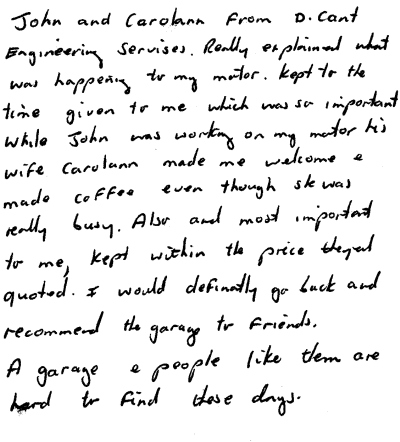 John and Carolann From D. Cant
Engineering Servises. Really explained what
was happening to my motor. Kept to the
time given to me which was so important
While John was working on my motor his
wife Carolann made me welcome &
made coffee even though she was
really busy. Also and most important
to me, Kept within the price they'd
quoted. I would definatly go back and
recommend the garage to Friends.
A garage & people like them are
hard to Find these days.